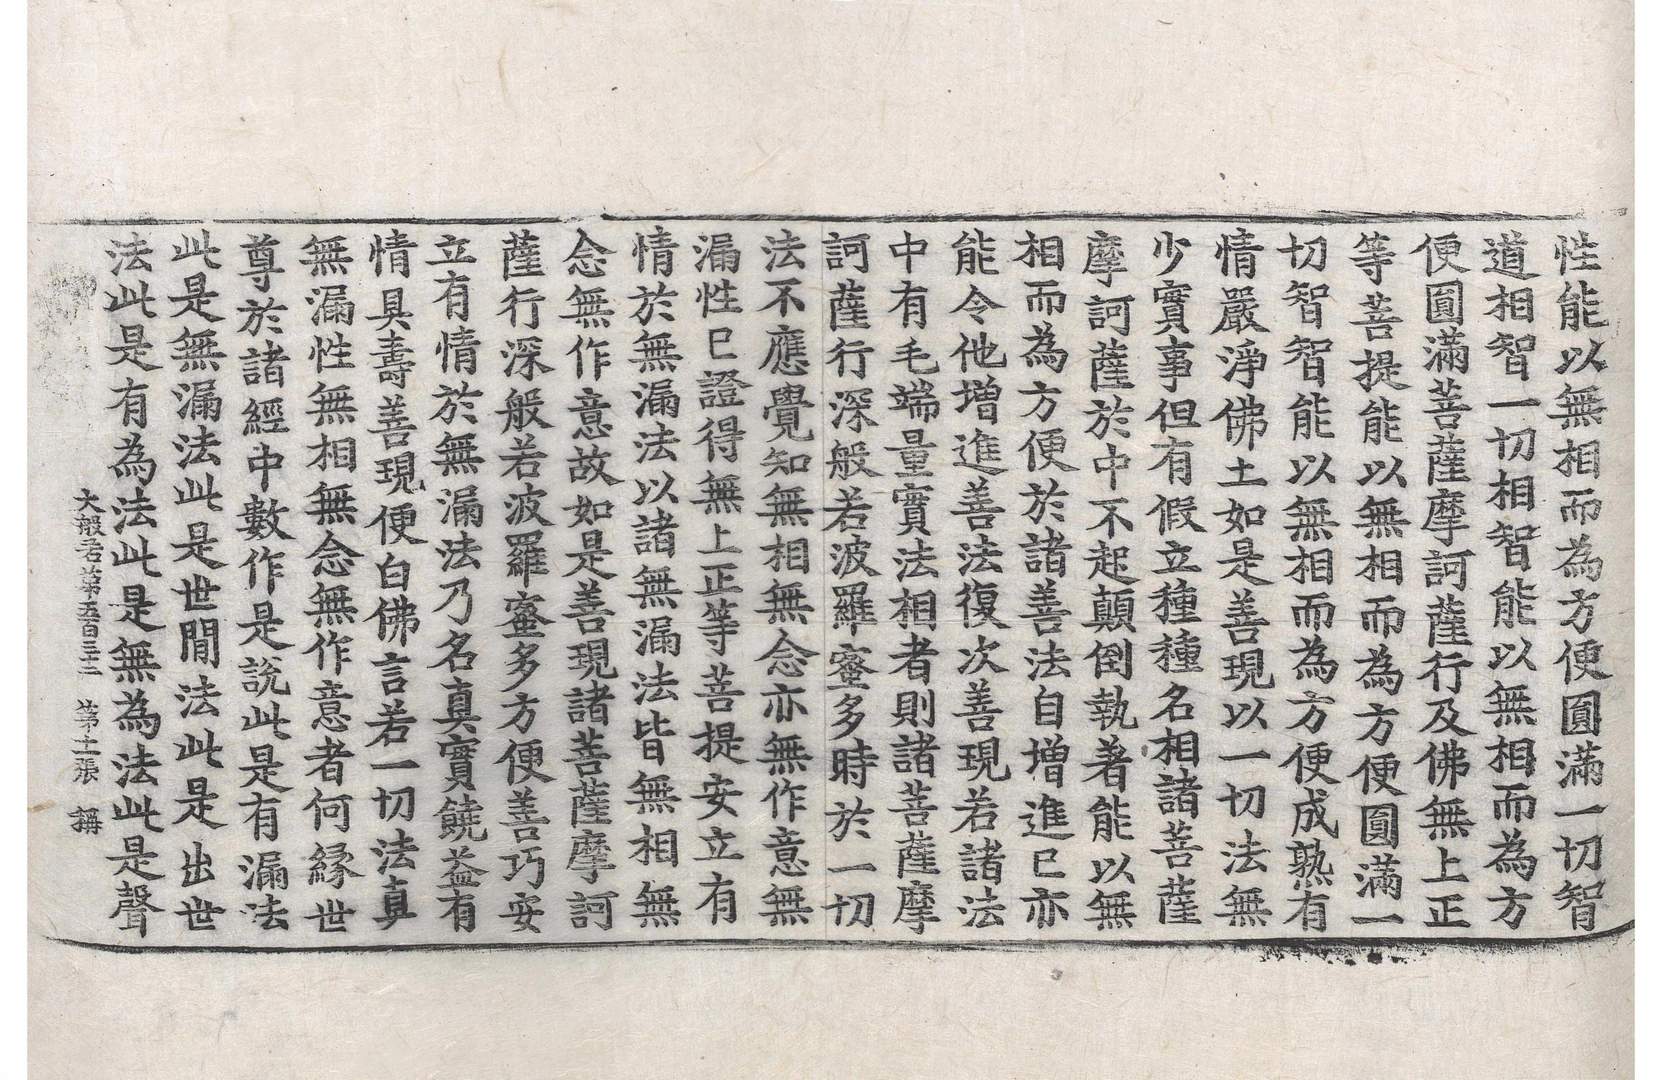 性能以無相而為方便圓滿一切智
道相智一切相智能以無相而為方
便圓滿菩薩摩訶薩行及佛無上正
等菩提能以無相而為方便圓滿一
切智智能以無相而為方便成熟有
情嚴淨佛土如是善現以一切法無
少實事但有假立種種名相諸菩薩
摩訶薩於中不起顛倒執著能以無
相而為方便於諸善法自增進已亦
能令他增進善法復次善現若諸法
中有毛端量實法相者則諸菩薩摩
訶薩行深般若波羅蜜多時於一切
法不應覺知無相無念亦無作意無
漏性已證得無上正等菩提安立有
情於無漏法以諸無漏法皆無相無
念無作意故如是善現諸菩薩摩訶
薩行深般若波羅蜜多方便善巧安
立有情於無漏法乃名真實饒益有
情具壽善現便白佛言若一切法真
無漏性無相無念無作意者何緣世
尊於諸經中數作是說此是有漏法
此是無漏法此是世間法此是出世
法此是有為法此是無為法此是聲
大般若第五百三十二 第十一張